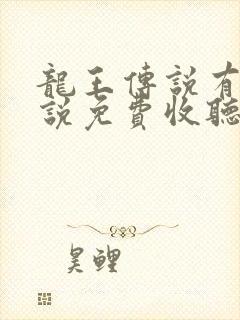 龍王傳說有
說免費收聽
昊鲤